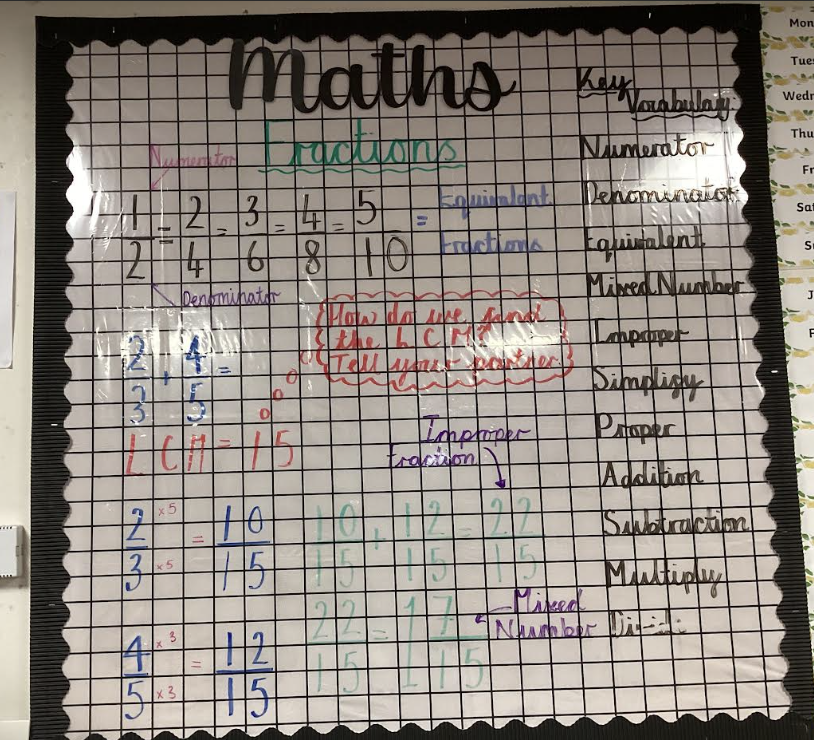 Maths
Fractions
Numerator
1/2 = 2/4 = 3/6 = 4/8 = 5/10 = Equivalent
Fractions
Denominator
How do we find
the LCM?
Tell your partner
2/3 + 4/5 =
LCM = 15
Improper
Fraction
2/3 ×5 ×5 = 10/15
10/15 + 12/15 = 22/15
4/5 ×3 ×3 = 12/15
22/15 = 1 7/15
Mixed
Number
Key
Vocabulary
Numerator
Denominator
Equivalent
Mixed Number
Improper
Simpligy
Proper
Addition
Subtraction
Multiply
Mon
Tues
Wedn
Thu
Fr
Sat
Su
J
F